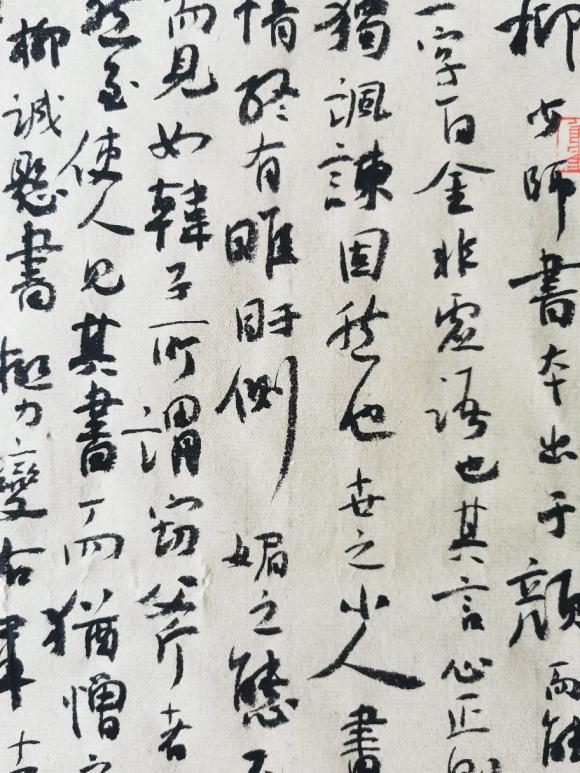 柳少師書本出于顏而能
一字百金非虛語也其言心正則
獨諷諫固然也世之小人書
情終有睢盱側媚之態不
而見如韓子所謂竊斧者
然至使人見其書而猶憎之
柳誠懸書極力變右軍